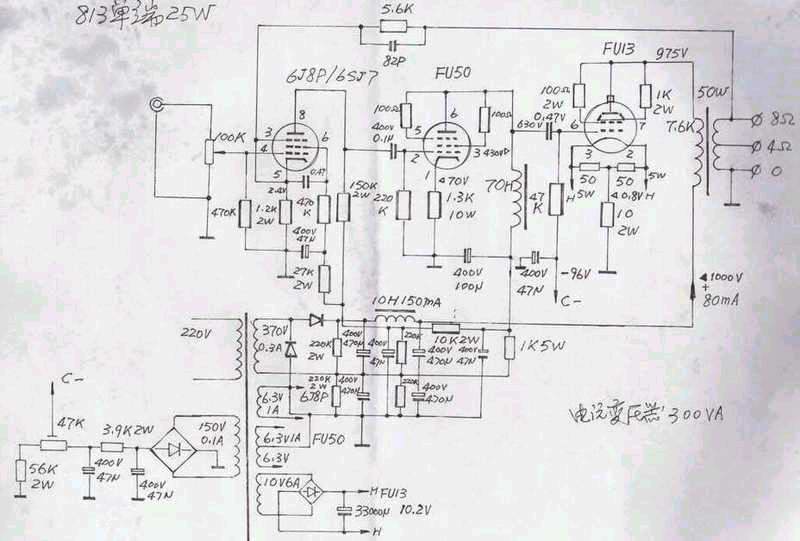 813单端25W
5.6K
82P
6J8P/6SJ7
FU50
FU13
975V
100K
8
3
4
5
6
2.4V
0.47
470K
1.2K
2W
470
K
400V
47N
27K
2W
150K
2W
400V
0.1N
100Ω
100Ω
6
5
2
3
1
430V
470V
220
K
1.3K
10W
400V
100N
70H
630V
0.47V
100Ω
2W
1K
2W
6
7
3
2
47
K
H
5W
50
50
5W
40.8V
H
10
2W
400V
47N
-96V
C-
50W
7.6K
8Ω
4Ω
0
1000V
+
80mA
220V
370V
0.3A
10H150mA
220K
2W
400V
470N
400V
47N
220K
400V
470N
10K2W
400V
47N
1K5W
220K
2W
400V
470N
220K
400V
470N
6.3V
1A
6J8P
6.3V1A
FU50
6.3V
10V6A
33000N
H
FU13
10.2V
H
C-
47K
3.9K2W
150V
0.1A
56K
2W
400V
47N
400V
47N
电源变压器300VA